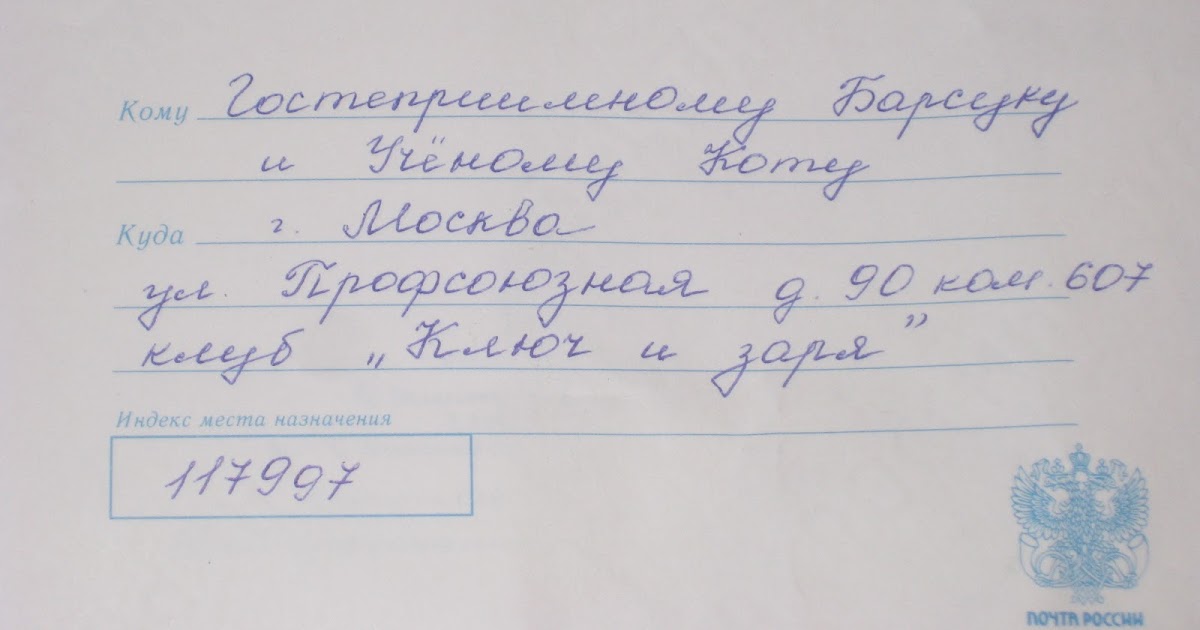 Кому Гостеприимному Барсуку
и Учёному Коту
Куда г. Москва
ул. Профсоюзная д. 90 ком. 607
клуб „Ключ и заря”
Индекс места назначения
117997
ПОЧТА РОССИИ